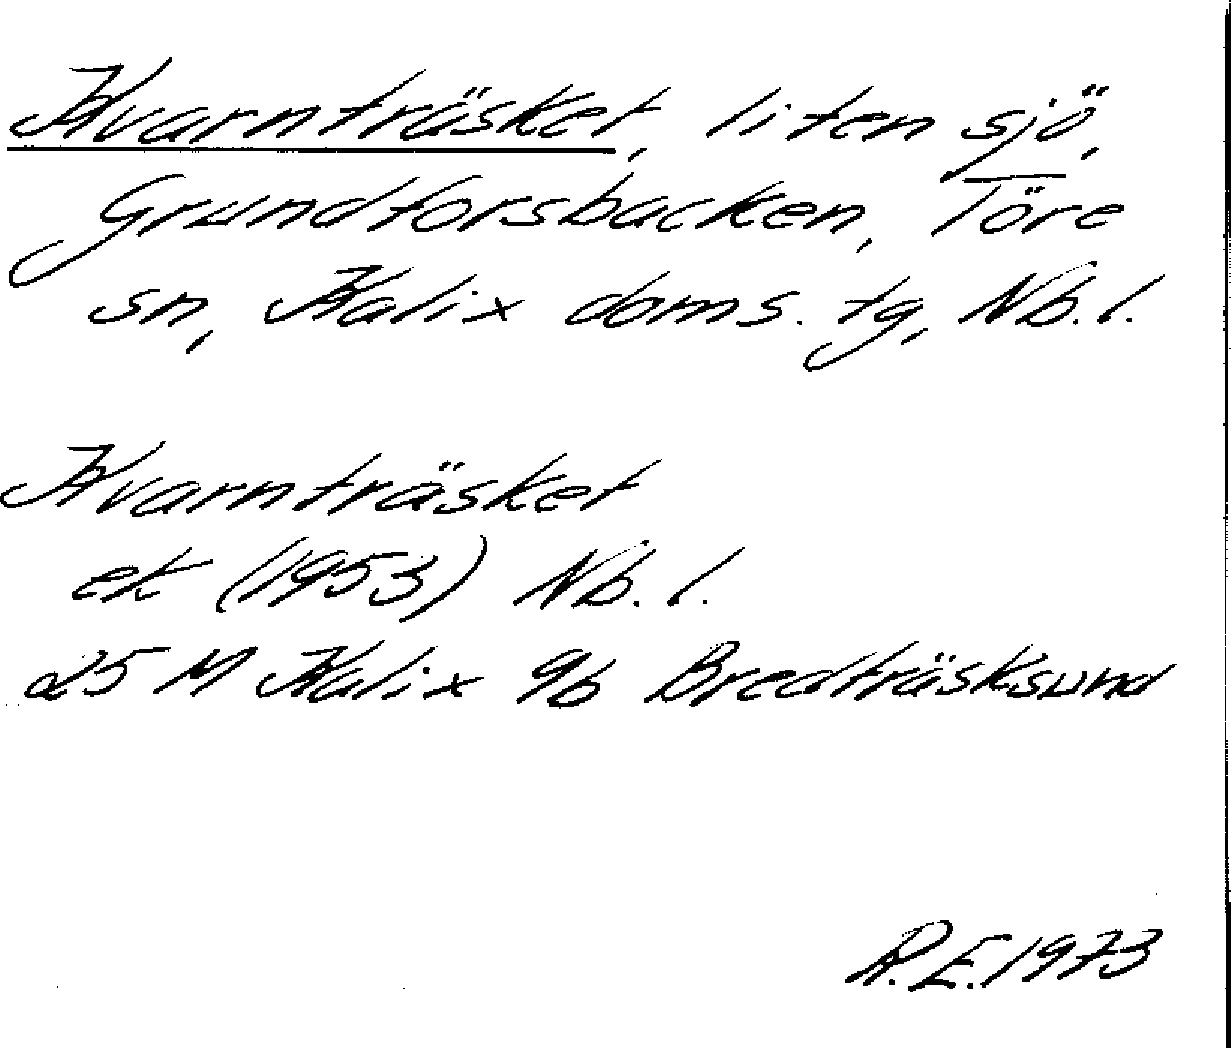 Kvarnträsket, liten sjö,
Grundforsbacken, Töre
sn, Kalix doms. tg, Nb. l.
Kvarnträsket
ek (1953) Nb. l.
25 M Kalix 9b Bredträsksund
R.E. 1973